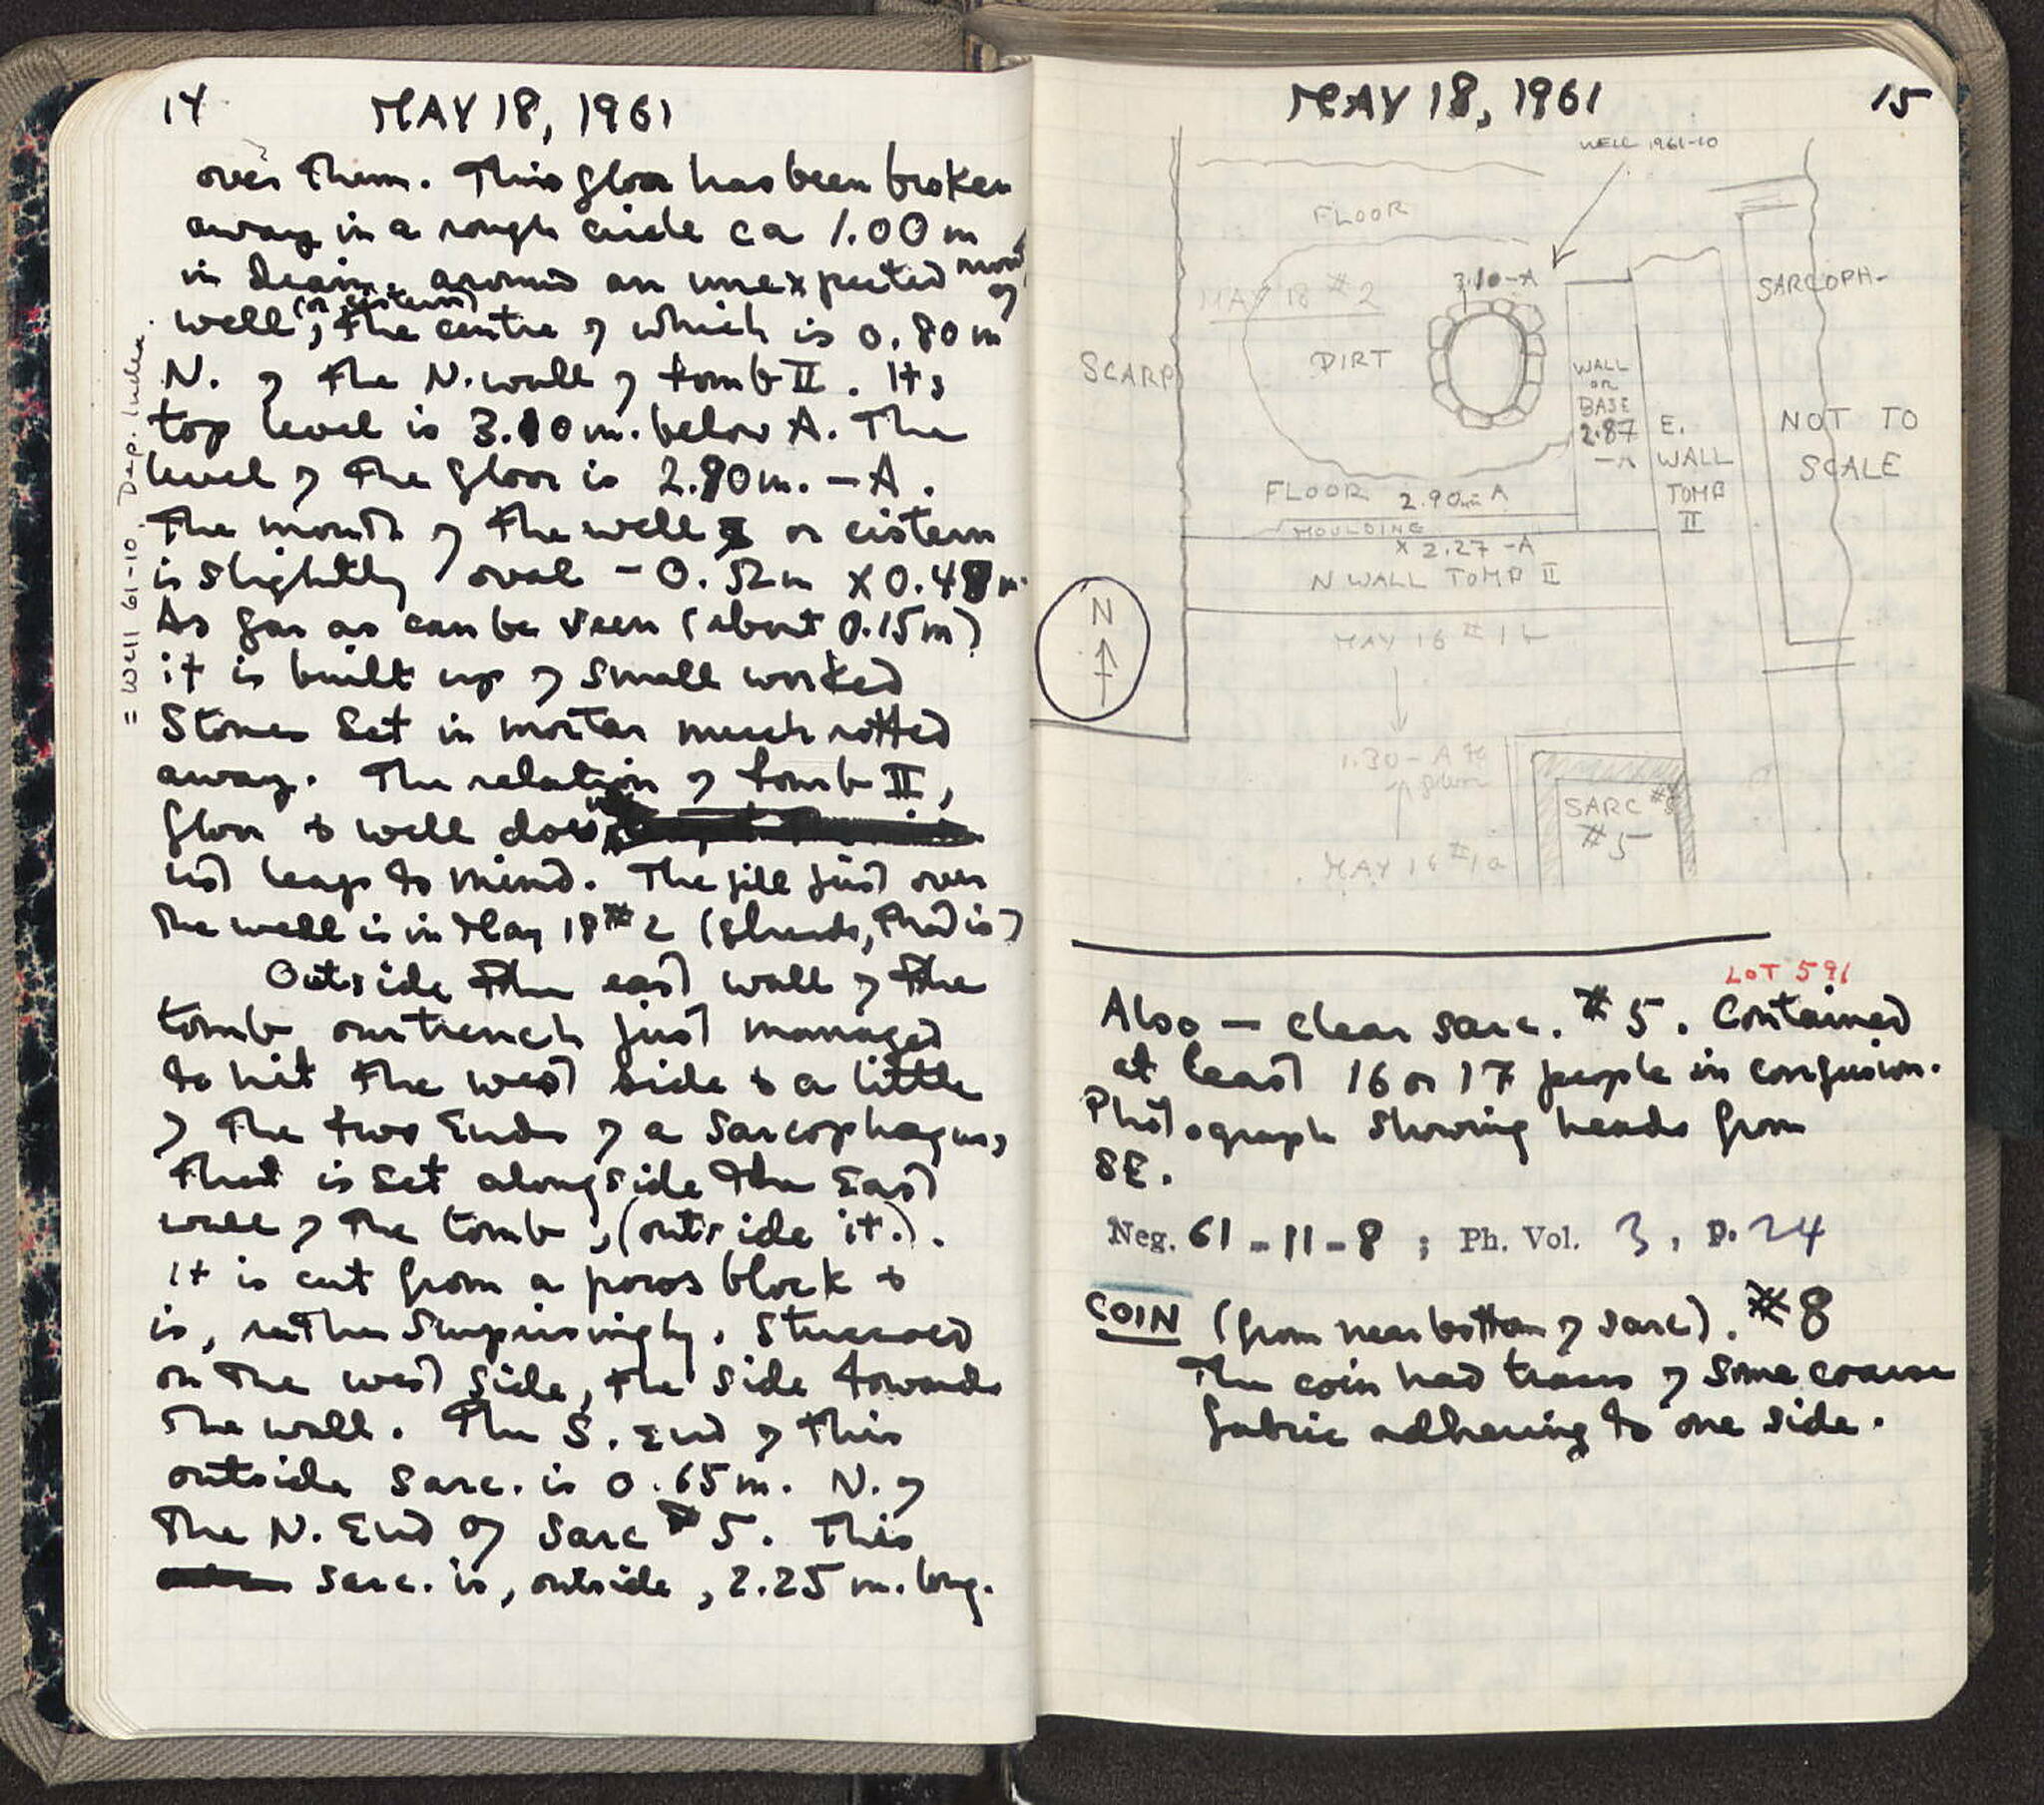 14
MAY 18, 1961
over them. This floor has been broken
away in a rough circle ca 1.00 m
in diam. around an unexpected mouth of
well (or cistern), the centre of which is 0.80 m
N. of the N. wall of tomb II. Its
top level is 3.10 m. below A. The
level of the floor is 2.90 m. – A.
The mouth of the well or cistern
is slightly oval – 0.52 m x 0.48 m.
As far as can be seen (about 0.15 m)
it is built up of small worked
stones set in mortar much rotted
away. The relation of tomb II,
floor & well does
not leap to mind. The fill just over
the well is in May 18 #2 (sherds, that is)
Outside the east wall of the
tomb our trench just managed
to hit the west side & a little
of the two ends of a sarcophagus,
that is set alongside the east
wall of the tomb, (outside it.).
It is cut from a poros block &
is, rather surprisingly, stuccoed
on the west side, the side towards
the wall. The S. end of this
outside sarc. is 0.65 m. N. of
the N. end of Sarc #5. This
sarc. is, outside, 2.25 m. long.
= Well 61-10. Dep. Index.
MAY 18, 1961
15
WELL 1961-10
FLOOR
MAY 18 #2
3.10-A
SARCOPH-
SCARP
DIRT
WALL
OR
BASE
2.87
-A
E.
WALL
TOMB
II
NOT TO
SCALE
FLOOR 2.90m A
MOULDING
x 2.27 -A
N WALL TOMB II
N
MAY 16 #1b
1.30 - A
MAY 16 #1a
SARC
#5
LOT 591
Also — clear sarc. #5. Contained
at least 16 or 17 people in confusion.
Photograph showing heads from
SE.
Neg. 61-11-8 ; Ph. Vol. 3, p. 24
COIN (from near bottom of sarc). #8
The coin had traces of some coarse
fabric adhering to one side.